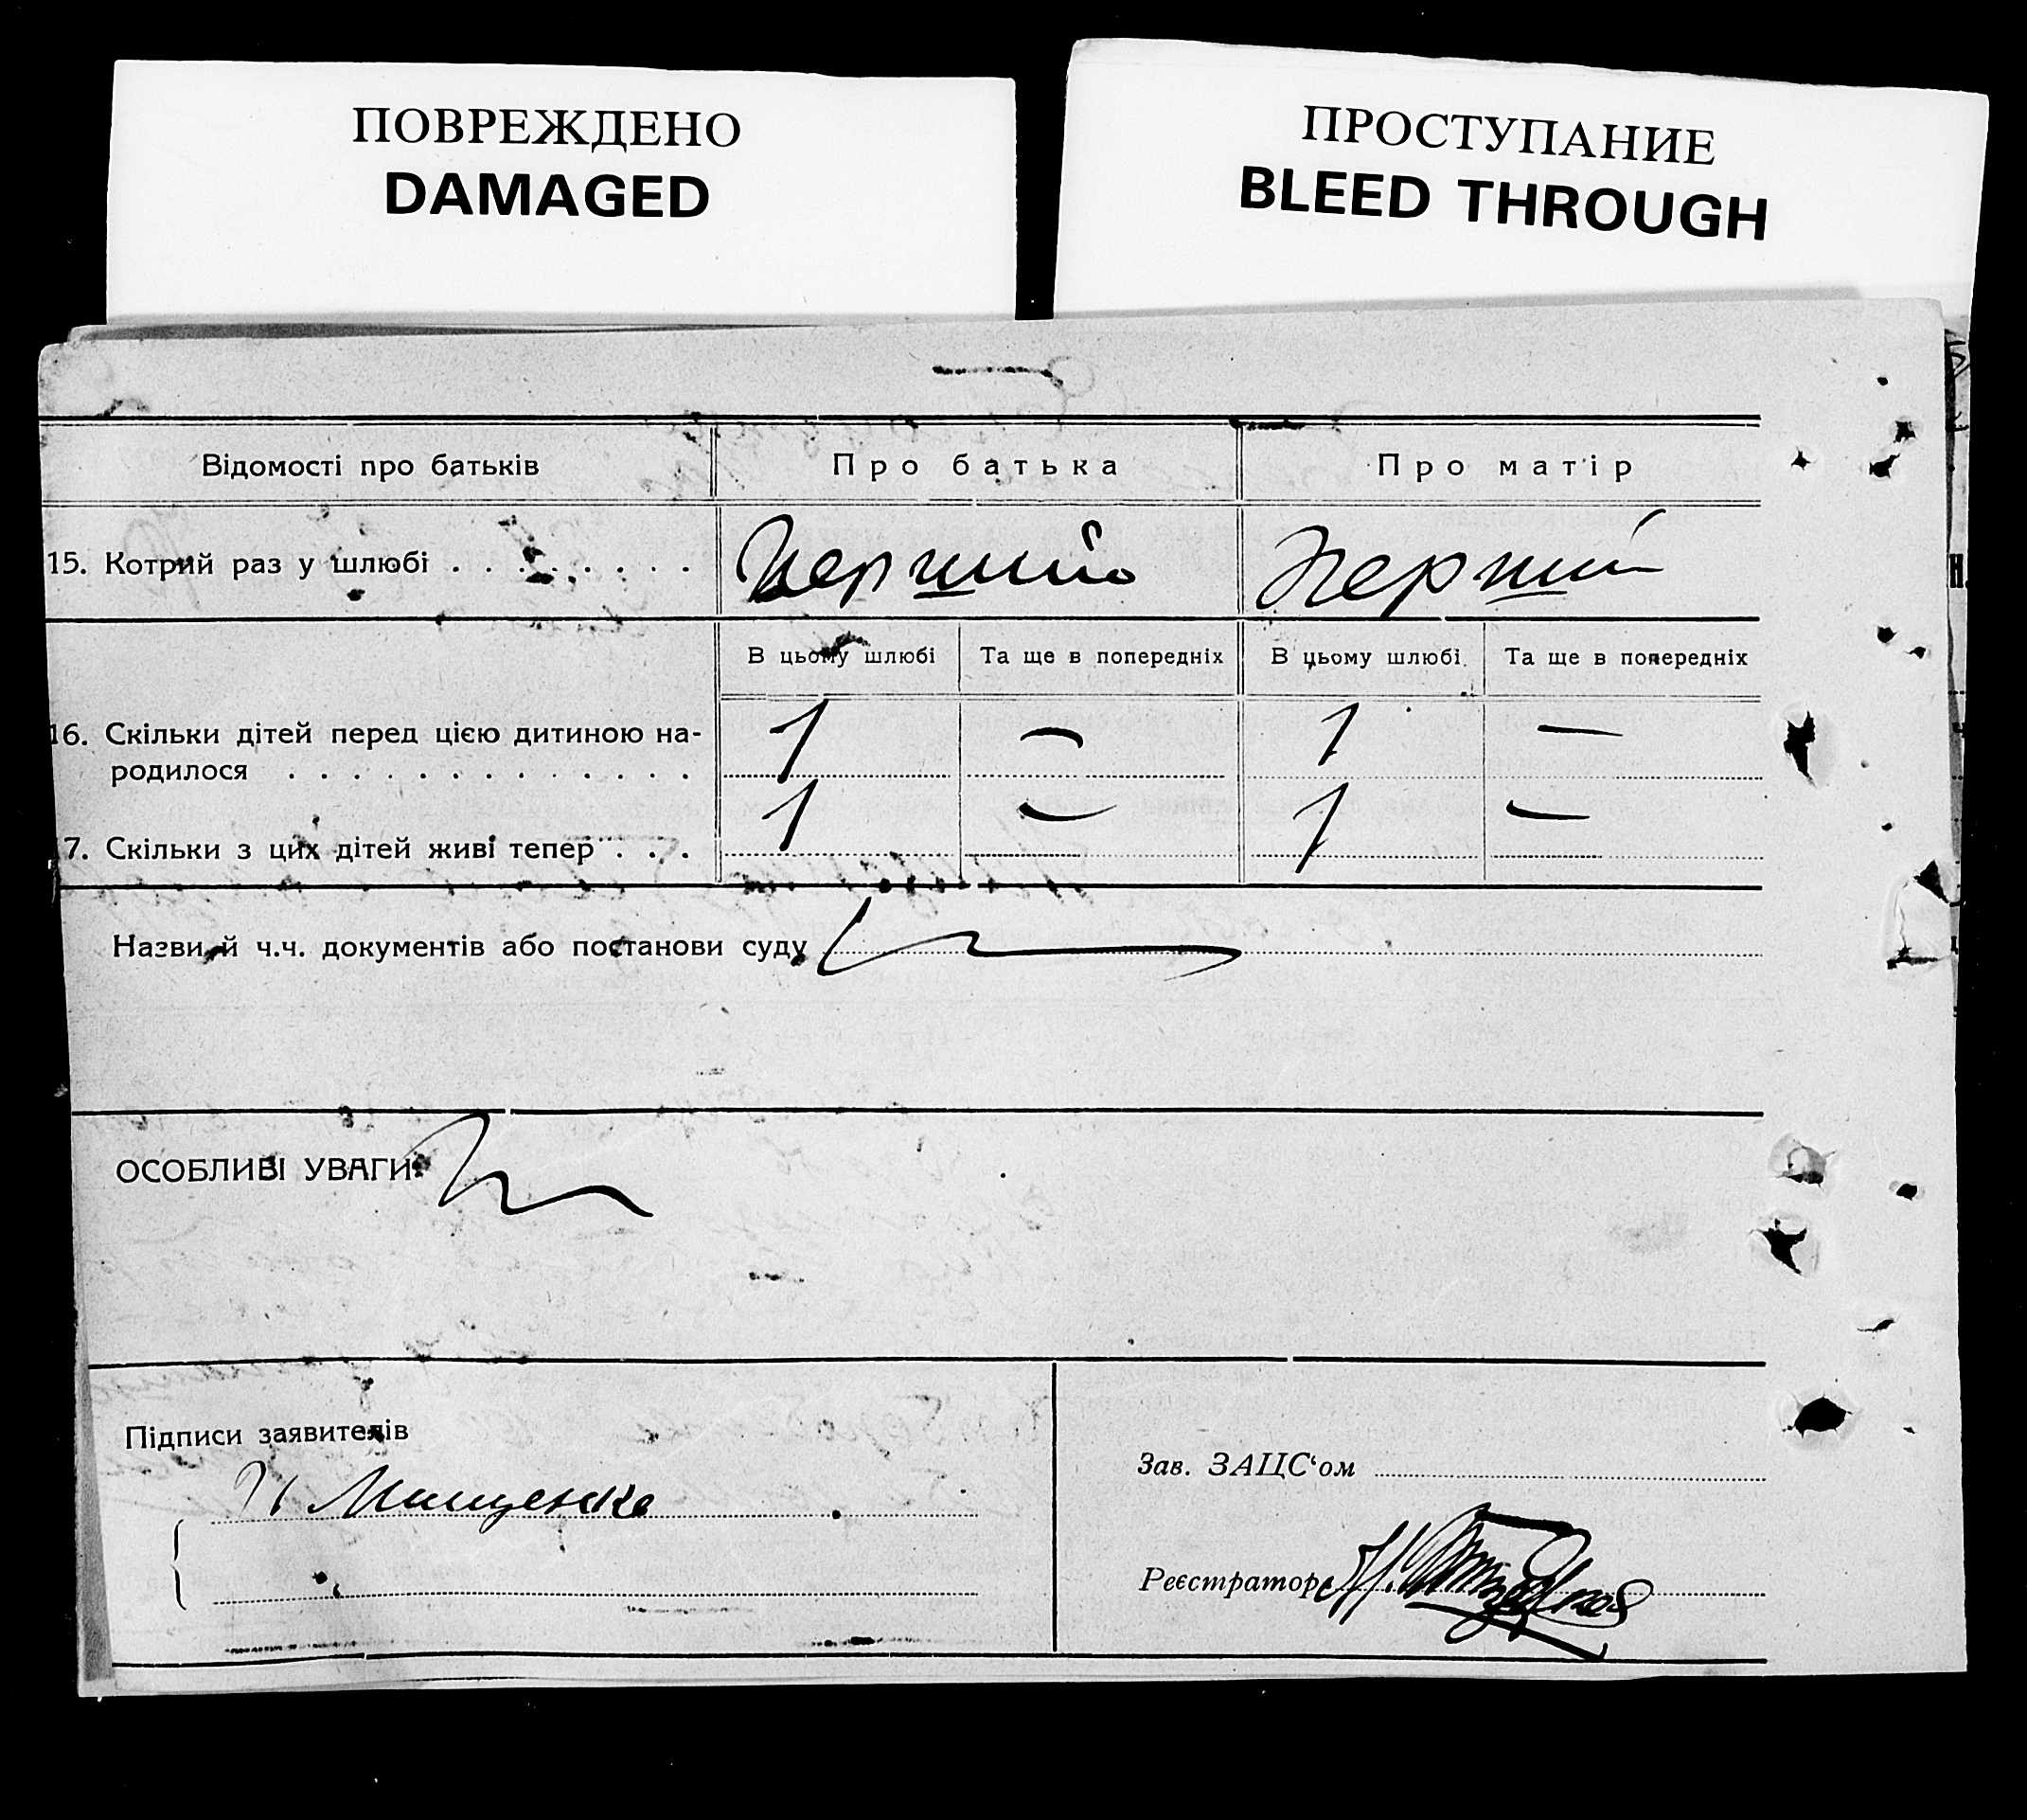 ПОВРЕЖДЕНО
DAMAGED
ПРОСТУПАНИЕ
BLEED THROUGH
Відомості про батьків Про батька Про матір
15. Котрий раз у шлюбі . . . . . . . . Перший Перший
В цьому шлюбі Та ще в попередніх В цьому шлюбі Та ще в попередніх
16. Скільки дітей перед цією дитиною на-
родилося . . . . . . . . . . . . . 1 — 1 —
7. Скільки з цих дітей живі тепер . . . 1 — 1 —
Назви й ч.ч. документів або постанови суду
ОСОБЛИВІ УВАГИ:
Підписи заявителів
Мищенко
Зав. ЗАЦС'ом
Реєстратор